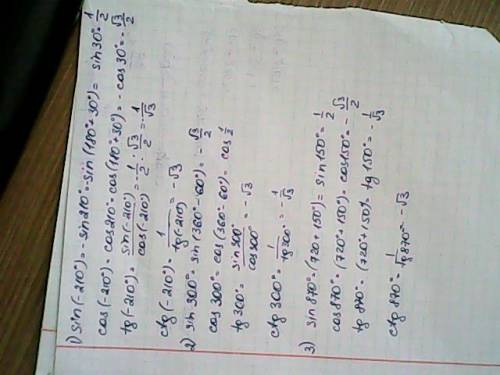 1) sin(-210°)= -sin210°= -sin(180°+30°)= sin30°= 1/2
cos(-210°)= cos210°= cos(180°+30°)= -cos30°= -√3/2
tg(-210°)= sin(-210°)/cos(-210°) = 1/2 : √3/2 = -1/√3
ctg(-210°)= 1/tg(-210) = -√3
2) sin300°= sin(360°-60°)= -√3/2
cos300°= cos(360°-60°)= cos 1/2
tg300°= sin300°/cos300° = -√3
ctg300°= 1/tg300° = -1/√3
3) sin870°= (720°+150°)= sin150°= 1/2
cos870°= (720°+150°)= cos150°= -√3/2
tg870°= (720°+150°)= tg150°= -1/√3
ctg870°= 1/tg870° = -√3